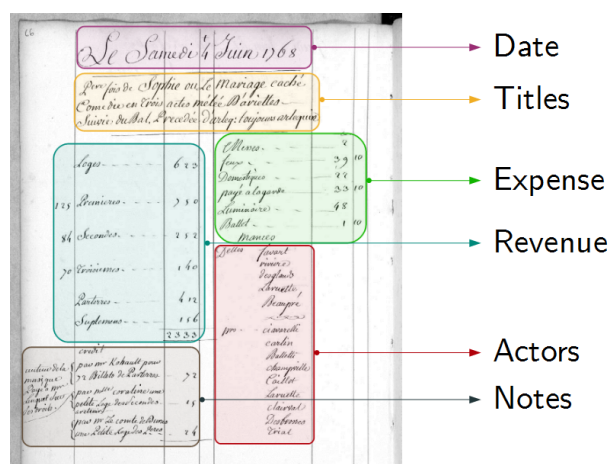 Le Samedi 4 Juin 1768
Date
1ere fois de Sophie ou Le Mariage caché
Comedie en trois actes mêlée D'ariettes
Suivie du Bal, Precedée d'arleq: toujours arlequin
Titles
Loges 623
125 Premieres 750
84 Secondes 252
70 Troisiemes 140
Parterres 412
Suplemens 156
2333
Revenue
Messes 2
feux 39 10
Domestiques 22
payé a la garde 33 10
Luminaire 48
Ballet 1 10
Expense
Mances
Delles favart
riviere
desglands
Laruette
Beaupré
Mrs ciavarelli
carlin
Balletti
champville
Caillot
Laruette
clairval
Desbrosses
trial
Actors
credit
par mr Kohault pour
72 Billets de Parterres 72
par melle coraline une
petite Loge de secondes
15
par Mr Le comte de
une Petite Loge des 24
musique
Notes